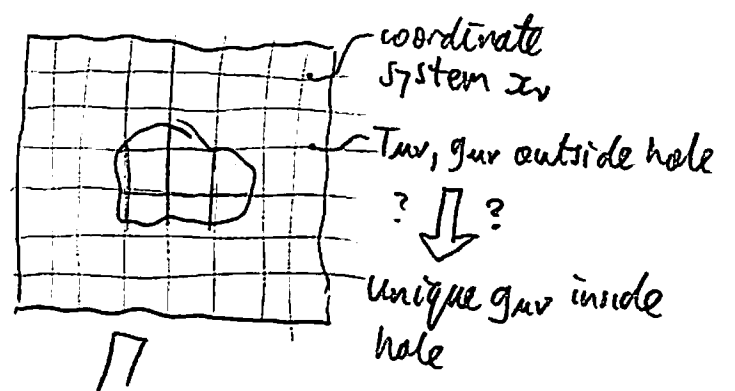 coordinate
system xν
Tμν, gμν outside hole
? ?
unique gμν inside
hole